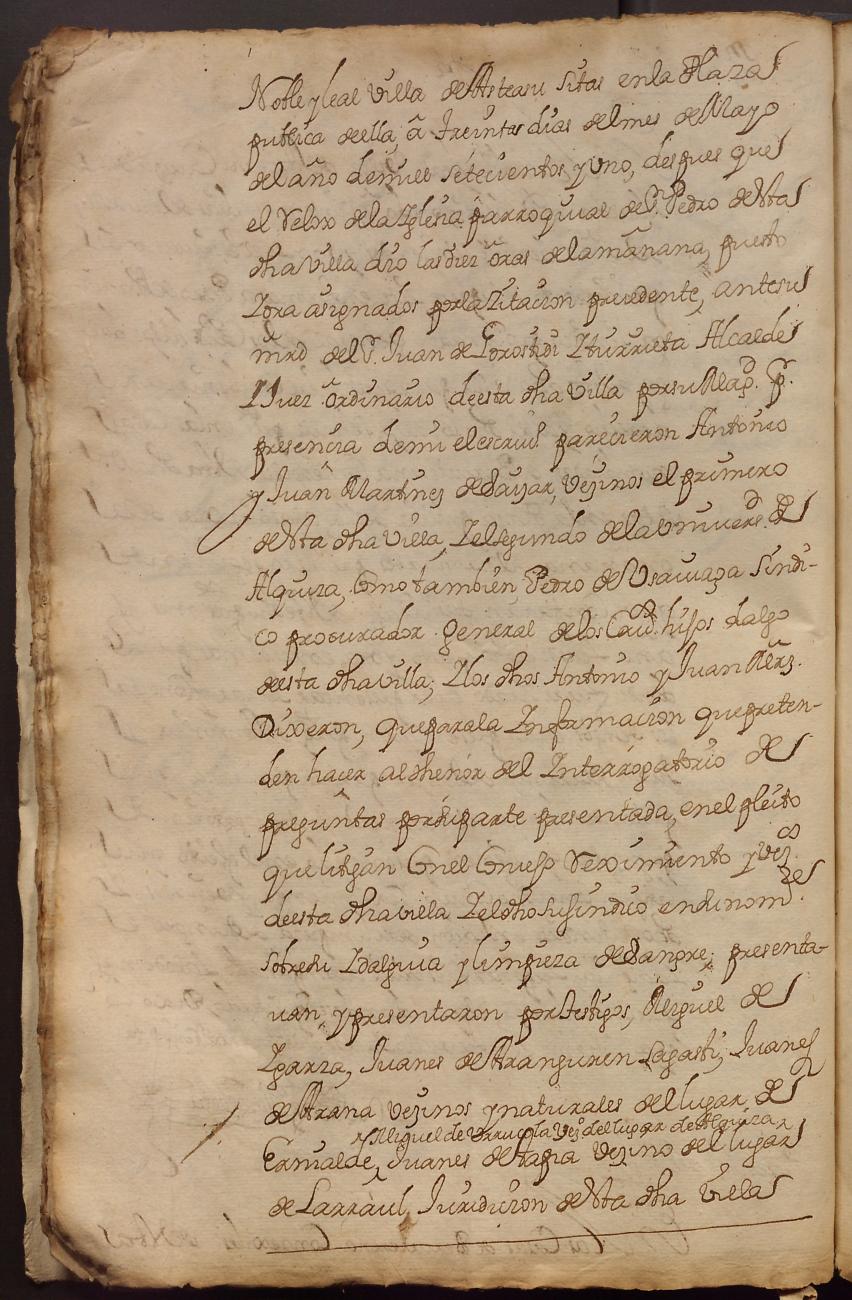 Noble y leal villa de Asteasu sitas en la Plaza
publica de ella, â treinta dias del mes de Mayo
del año de mill setecientos y uno, despues que
el Relox de la Iglesia parroquial de S. Pedro de esta
dha Villa dio las diez oras de la mañana, puesto
Zora asignados por la Zitacion precedente, ante su
mrd del S. Juan de Lorostidi Yturrieta Alcalde
Y Juez ordinario de esta dha Villa por su Magd. p.
presencia de mi el escriu° parecieron Antonio
y Juan Martinez de Sayar, vezinos el primero
de esta dha Villa, Y el segundo de la Universd. de
Alquiza, Como tambien, Pedro de Usauiaga sindi-
co procurador general de los Cauos. hijos dalgo
de esta dha villa; Y los dhos Antonio y Juan Mrnz.
Dixeron, que para la Informacion que preten-
den hacer al thenor del Interrogatorio de
preguntas por su parte presentada, en el pleito
que litigan Con el Conçejo Reximiento y vezos
de esta dha villa Y el dho su sindico en su nomre.
sobre su Ydalguia y limpieza de Sangre; presenta-
uan, y presentaron por testigos, Miguel de
Ygarza, Juanes de Aranguren Lagasti, Juanes
de Arana vezinos y naturales del lugar de
y Miguel de Urrucola Vez° del lugar de Alquiza
Ernialde, Juanes de tapia vezino del lugar
de Larraul, Juridicion de esta dha Villa